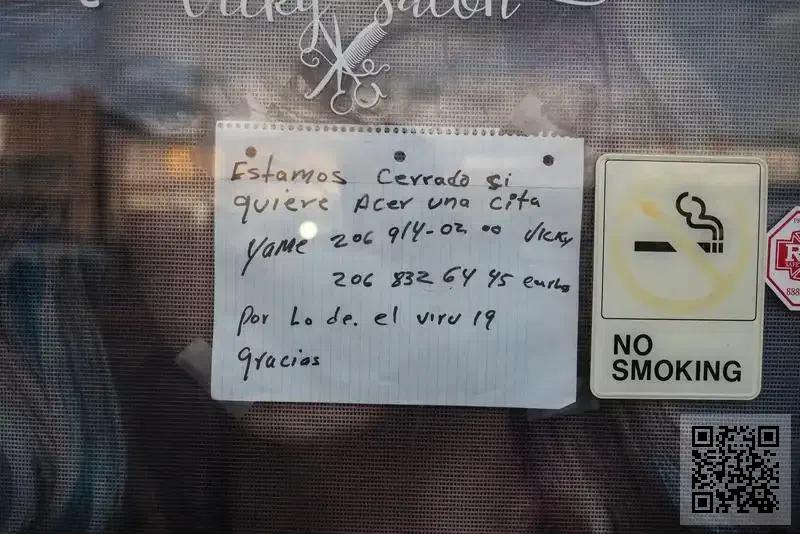 Vicky Salon
Estamos Cerrado si
quiere Acer una cita
YaMe 206 914-02 00 Vicky
206 832 64 45
por Lo de. el viru 19
gracias
NO
SMOKING
R
888